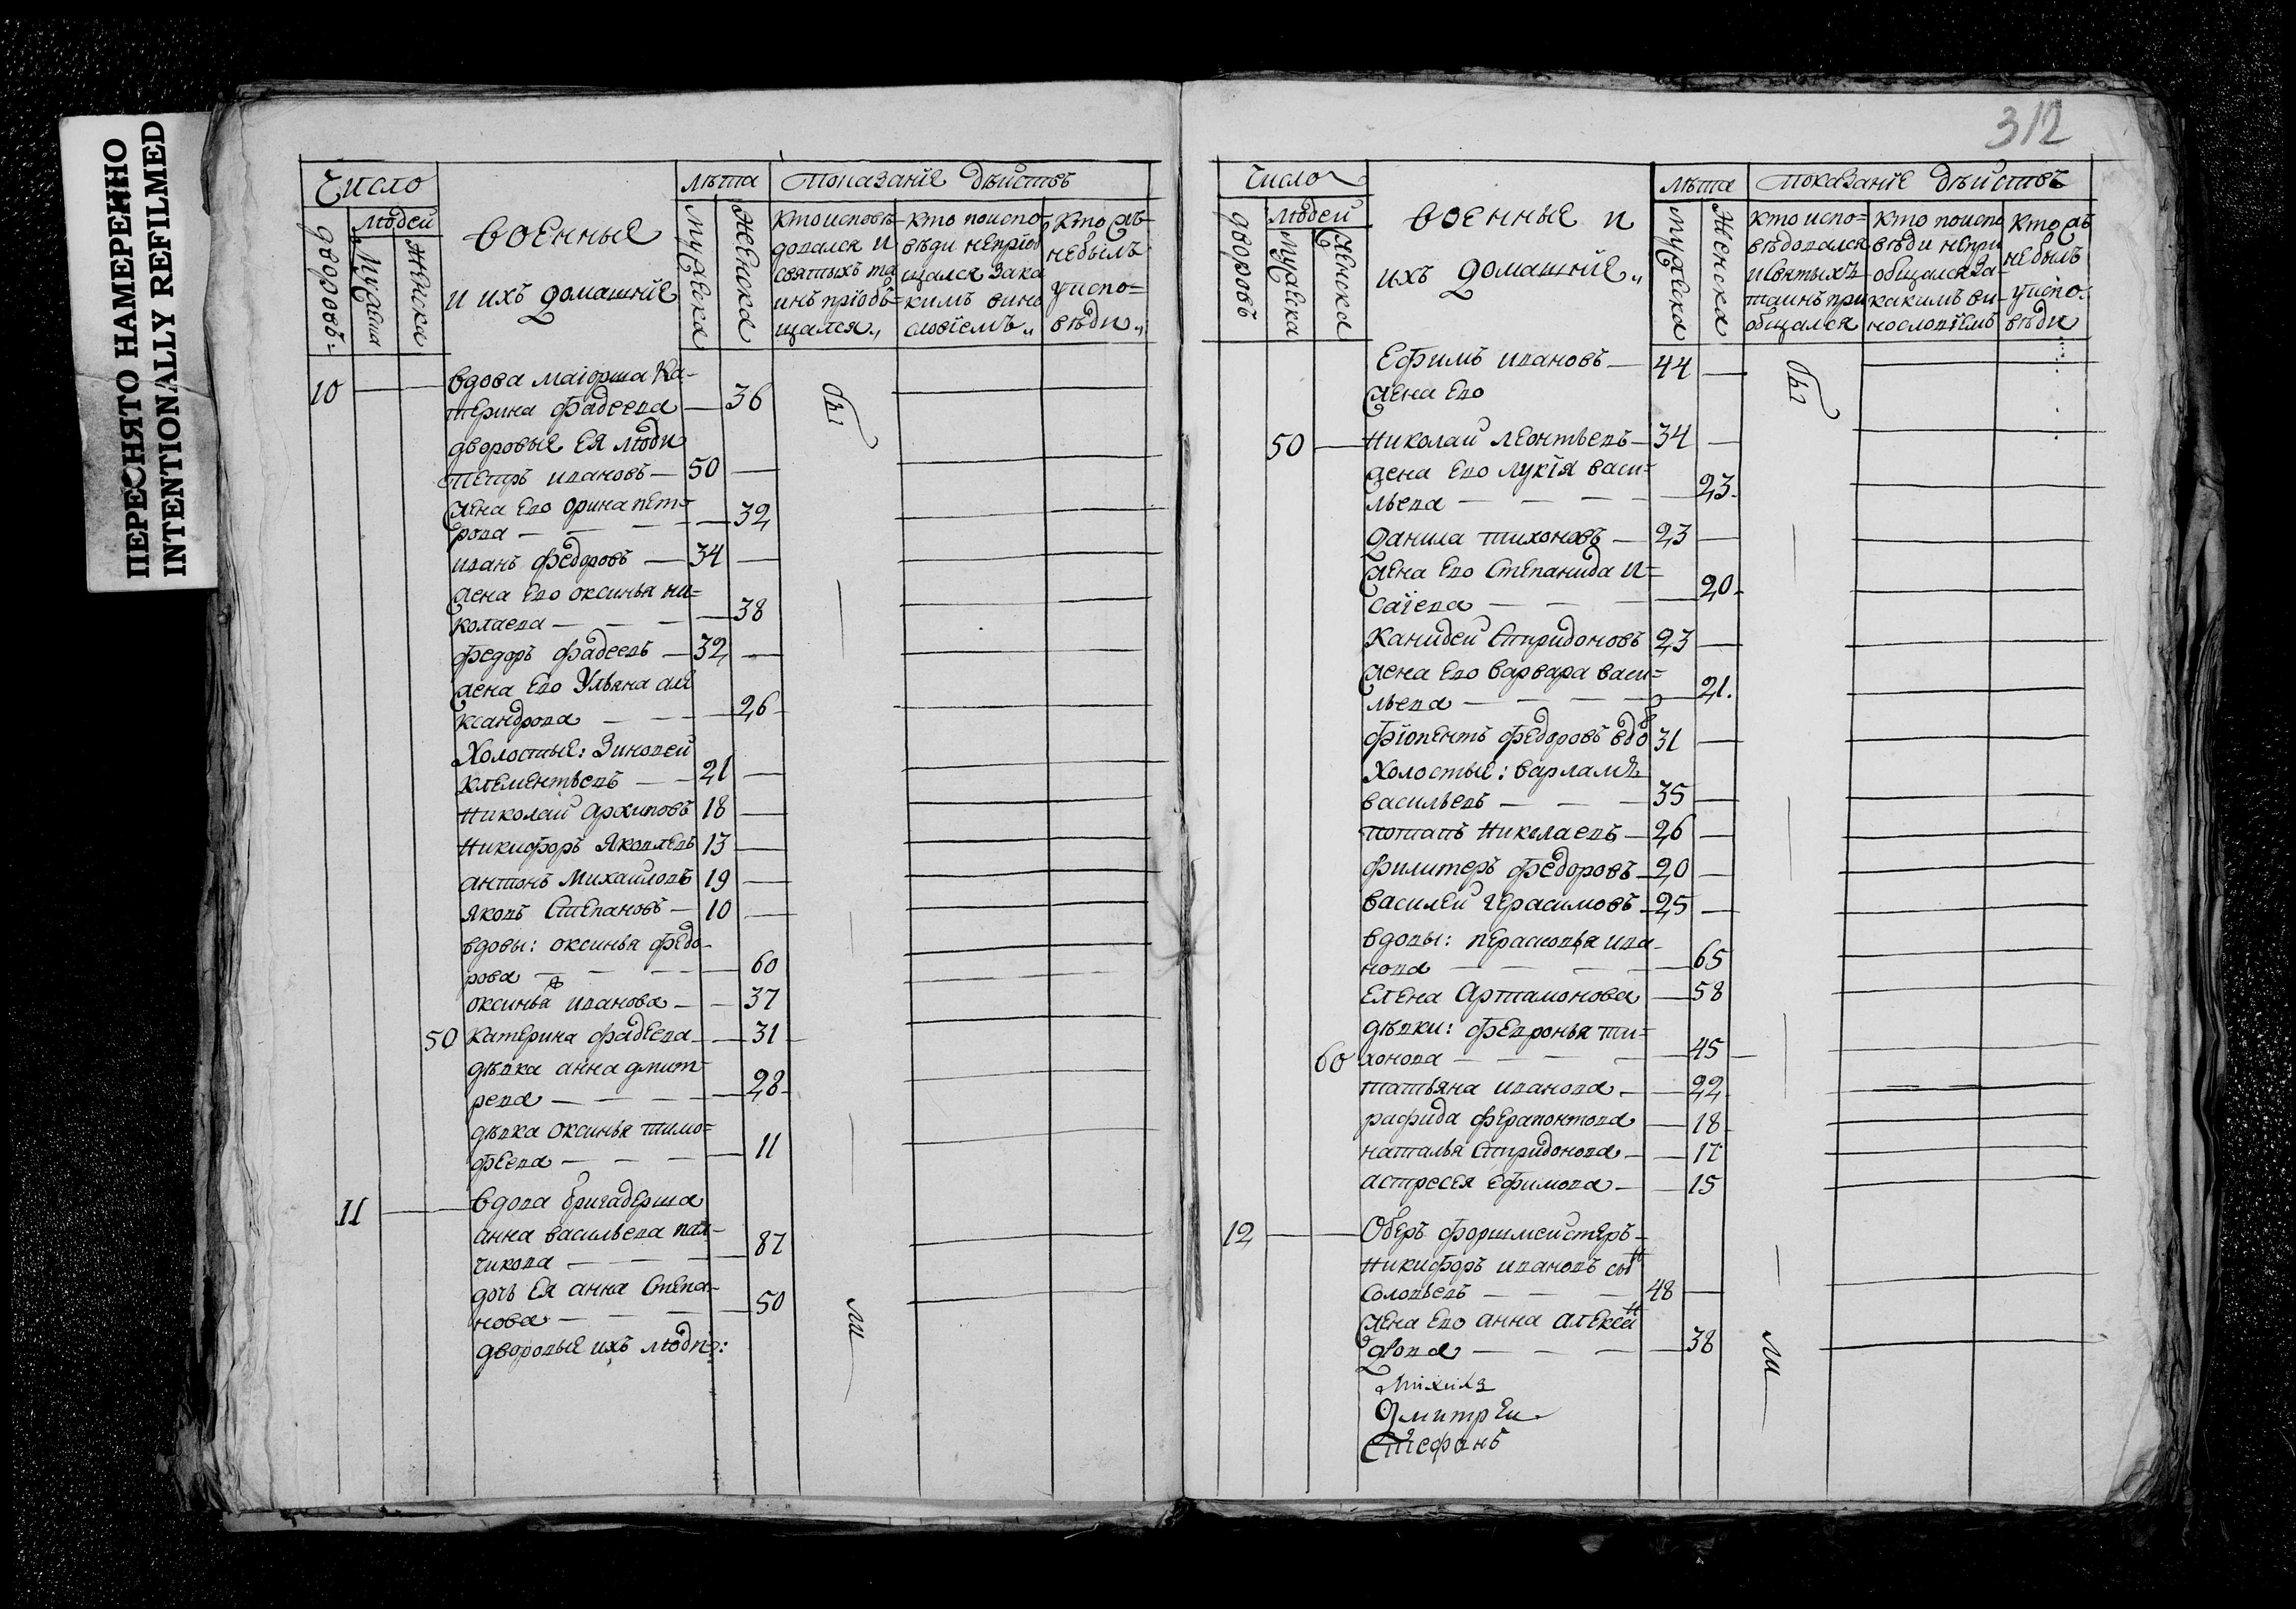 ПЕРЕСНЯТО НАМЕРЕННО
INTENTIONALLY REFILMED
Число
людей
дворовъ
Мужеска
Женска
военные
и ихъ домашніе
лѣта
Мужеска
Женска
показаніе дѣйствъ
кто исповѣ-
довался и
святыхъ та
инъ пріобъ=
щался
кто поиспо-
вѣди непріоб
щался зака
кимъ вино
словіемъ
кто жъ
небылъ
уиспо=
вѣди
10 вдова маіорша Ка-
терина фадеева — 36 бы
дворовые ея люди
петръ ивановъ — 50
жена его орина пет-
рова — 32
иванъ федоровъ — 34
жена его оксинья ни=
колаева — 38
федоръ фадеевъ — 32
жена его Ульяна але
ксандрова — 26
Холостые: Зиновей
клементьевъ — 21
Николай Архиповъ 18
Никифоръ Яковлевъ 13
антонъ Михаиловъ 19
яковъ Степановъ — 10
вдовы: оксинья федо-
рова — 60
оксинья иванова — 37
50 катерина фадеева — 31
дѣвка анна дмит
реева — 28
дѣвка оксинья тимо=
феева — 11
11 вдова бригадерша
анна васильева пал-
чикова — 87
дочь ея анна Степа-
нова — 50 ли
дворовые ихъ люди:
312
число
людей
дворовъ
Мужеска
Женска
военные и
ихъ домашніе
лѣта
Мужеска
Женска
показаніе дѣйствъ
кто испо=
вѣдовался
исвятыхъ
таинъ при
общался
кто поиспо
вѣди непри
общался за-
какимъ ви-
нословіемъ
кто жъ
не былъ
уиспо-
вѣди
Ефимъ ивановъ — 44 бы
жена его
50 Николай леонтьевъ — 34
жена его лукія васи=
льева — 23
Данила тихоновъ — 23
жена его Степанида и=
саіева — 20
Канидей Спиридоновъ 23
жена его варвара васи=
льева — 21
федоровъ вдо 31
Холостые: варламъ
васильевъ — 35
потапъ Николаевъ — 26
филитеръ федоровъ — 20
василей герасимовъ — 25
вдовы: перасковья ива-
нова — 65
елена Артамонова — 58
дѣвки: февронья ти=
60 хонова — 45
татьяна иванова — 22
рафида ферапонтова — 18
наталья Спиридонова — 17
астресея Ефимова — 15
12 Оберъ форшмейстеръ
Никифоръ ивановъ сынъ
Соловьевъ — 48
жена его анна алексѣ
— 38 ли
Михаила
Дмитреи
Стефанъ